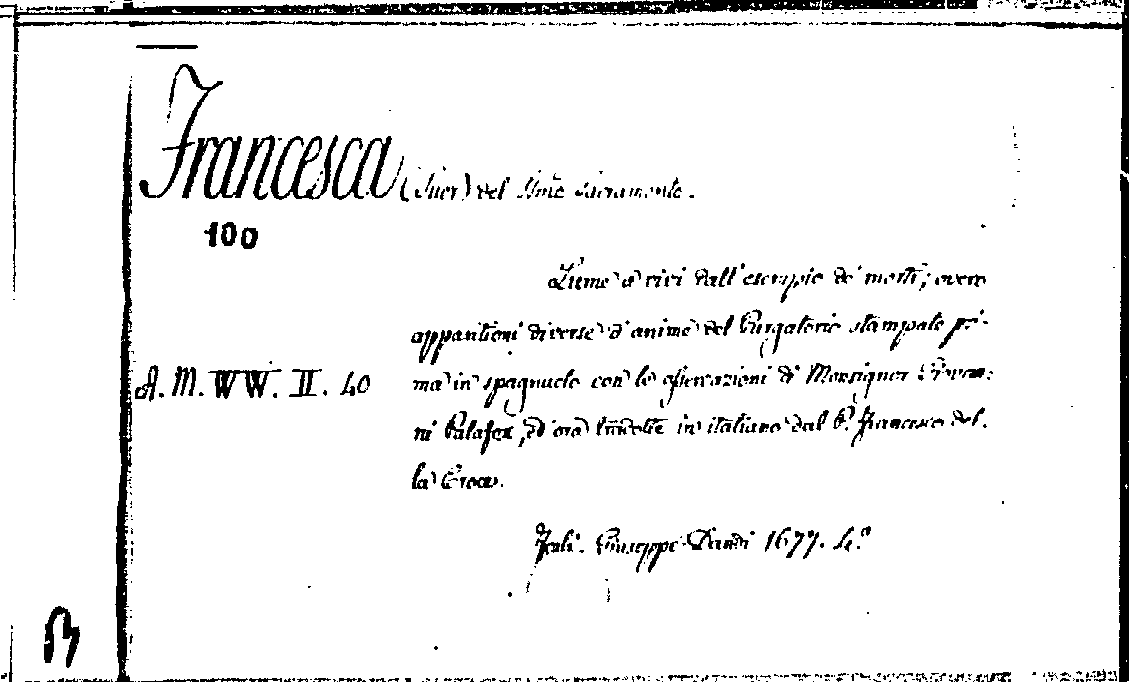 Francesca (Suor) del SSmo Sacramento.
100
Lume a' vivi dall'esempio de' morti; overo
apparitioni diverse d'anime del Purgatorio stampate pri-
A. M. WW. II. 40
ma in spagnuolo con le osservazioni di Monsignor Giovan-
ni Palafox, ed ora tradotte in italiano dal P. Francesco del-
la Croce.
Forlì. Giuseppe Dandi 1677. 4.°